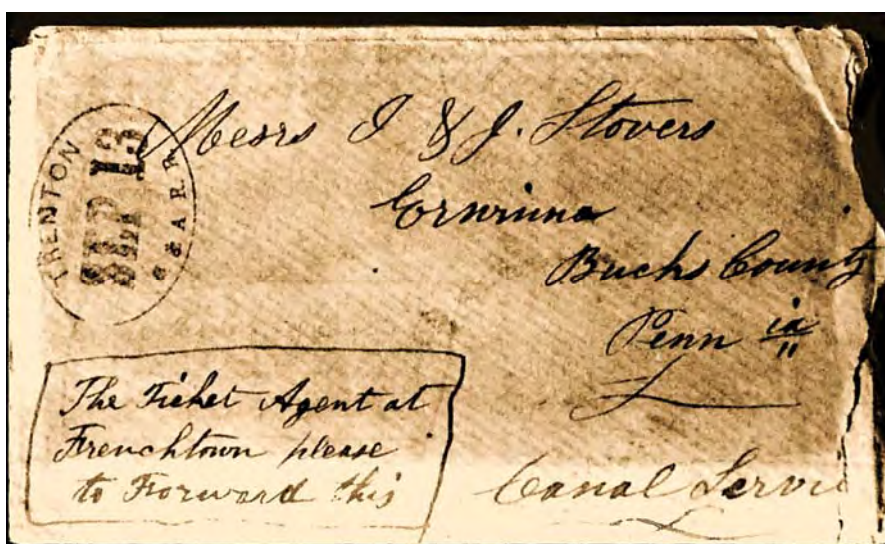 TRENTON
SEP 13
& A R. R
Messrs I & J. Stovers
Erwinna
Bucks County
Penn ia
The Ticket Agent at
Frenchtown please
to Forward this
Canal Servi